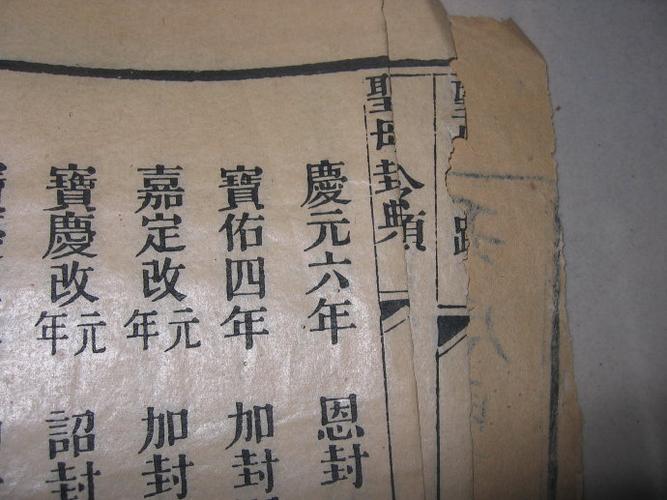 聖母
封典
慶元六年 恩封
寶佑四年 加封
嘉定改元年 加封
寶慶改元年 詔封